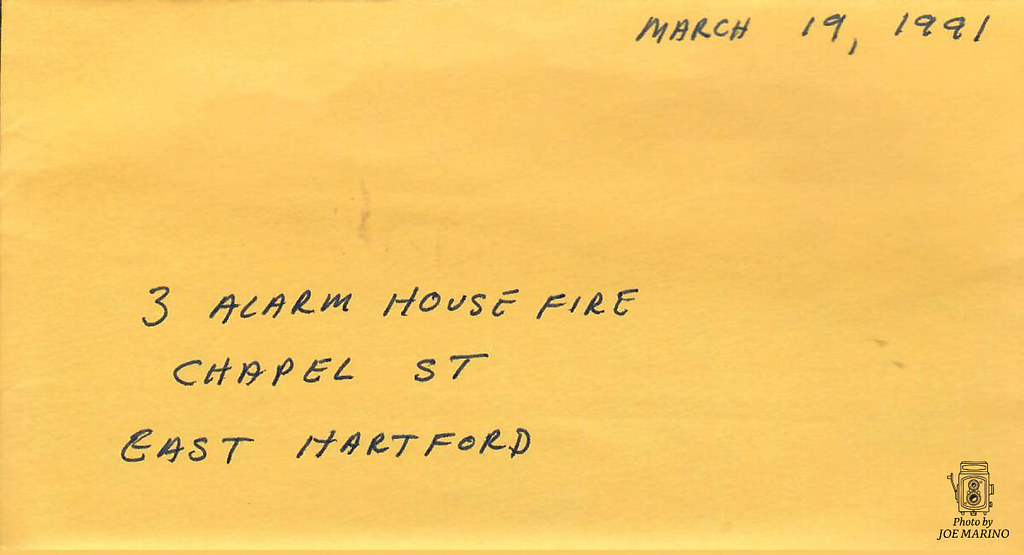 MARCH 19, 1991
3 ALARM HOUSE FIRE
CHAPEL ST
EAST HARTFORD
Photo by
JOE MARINO